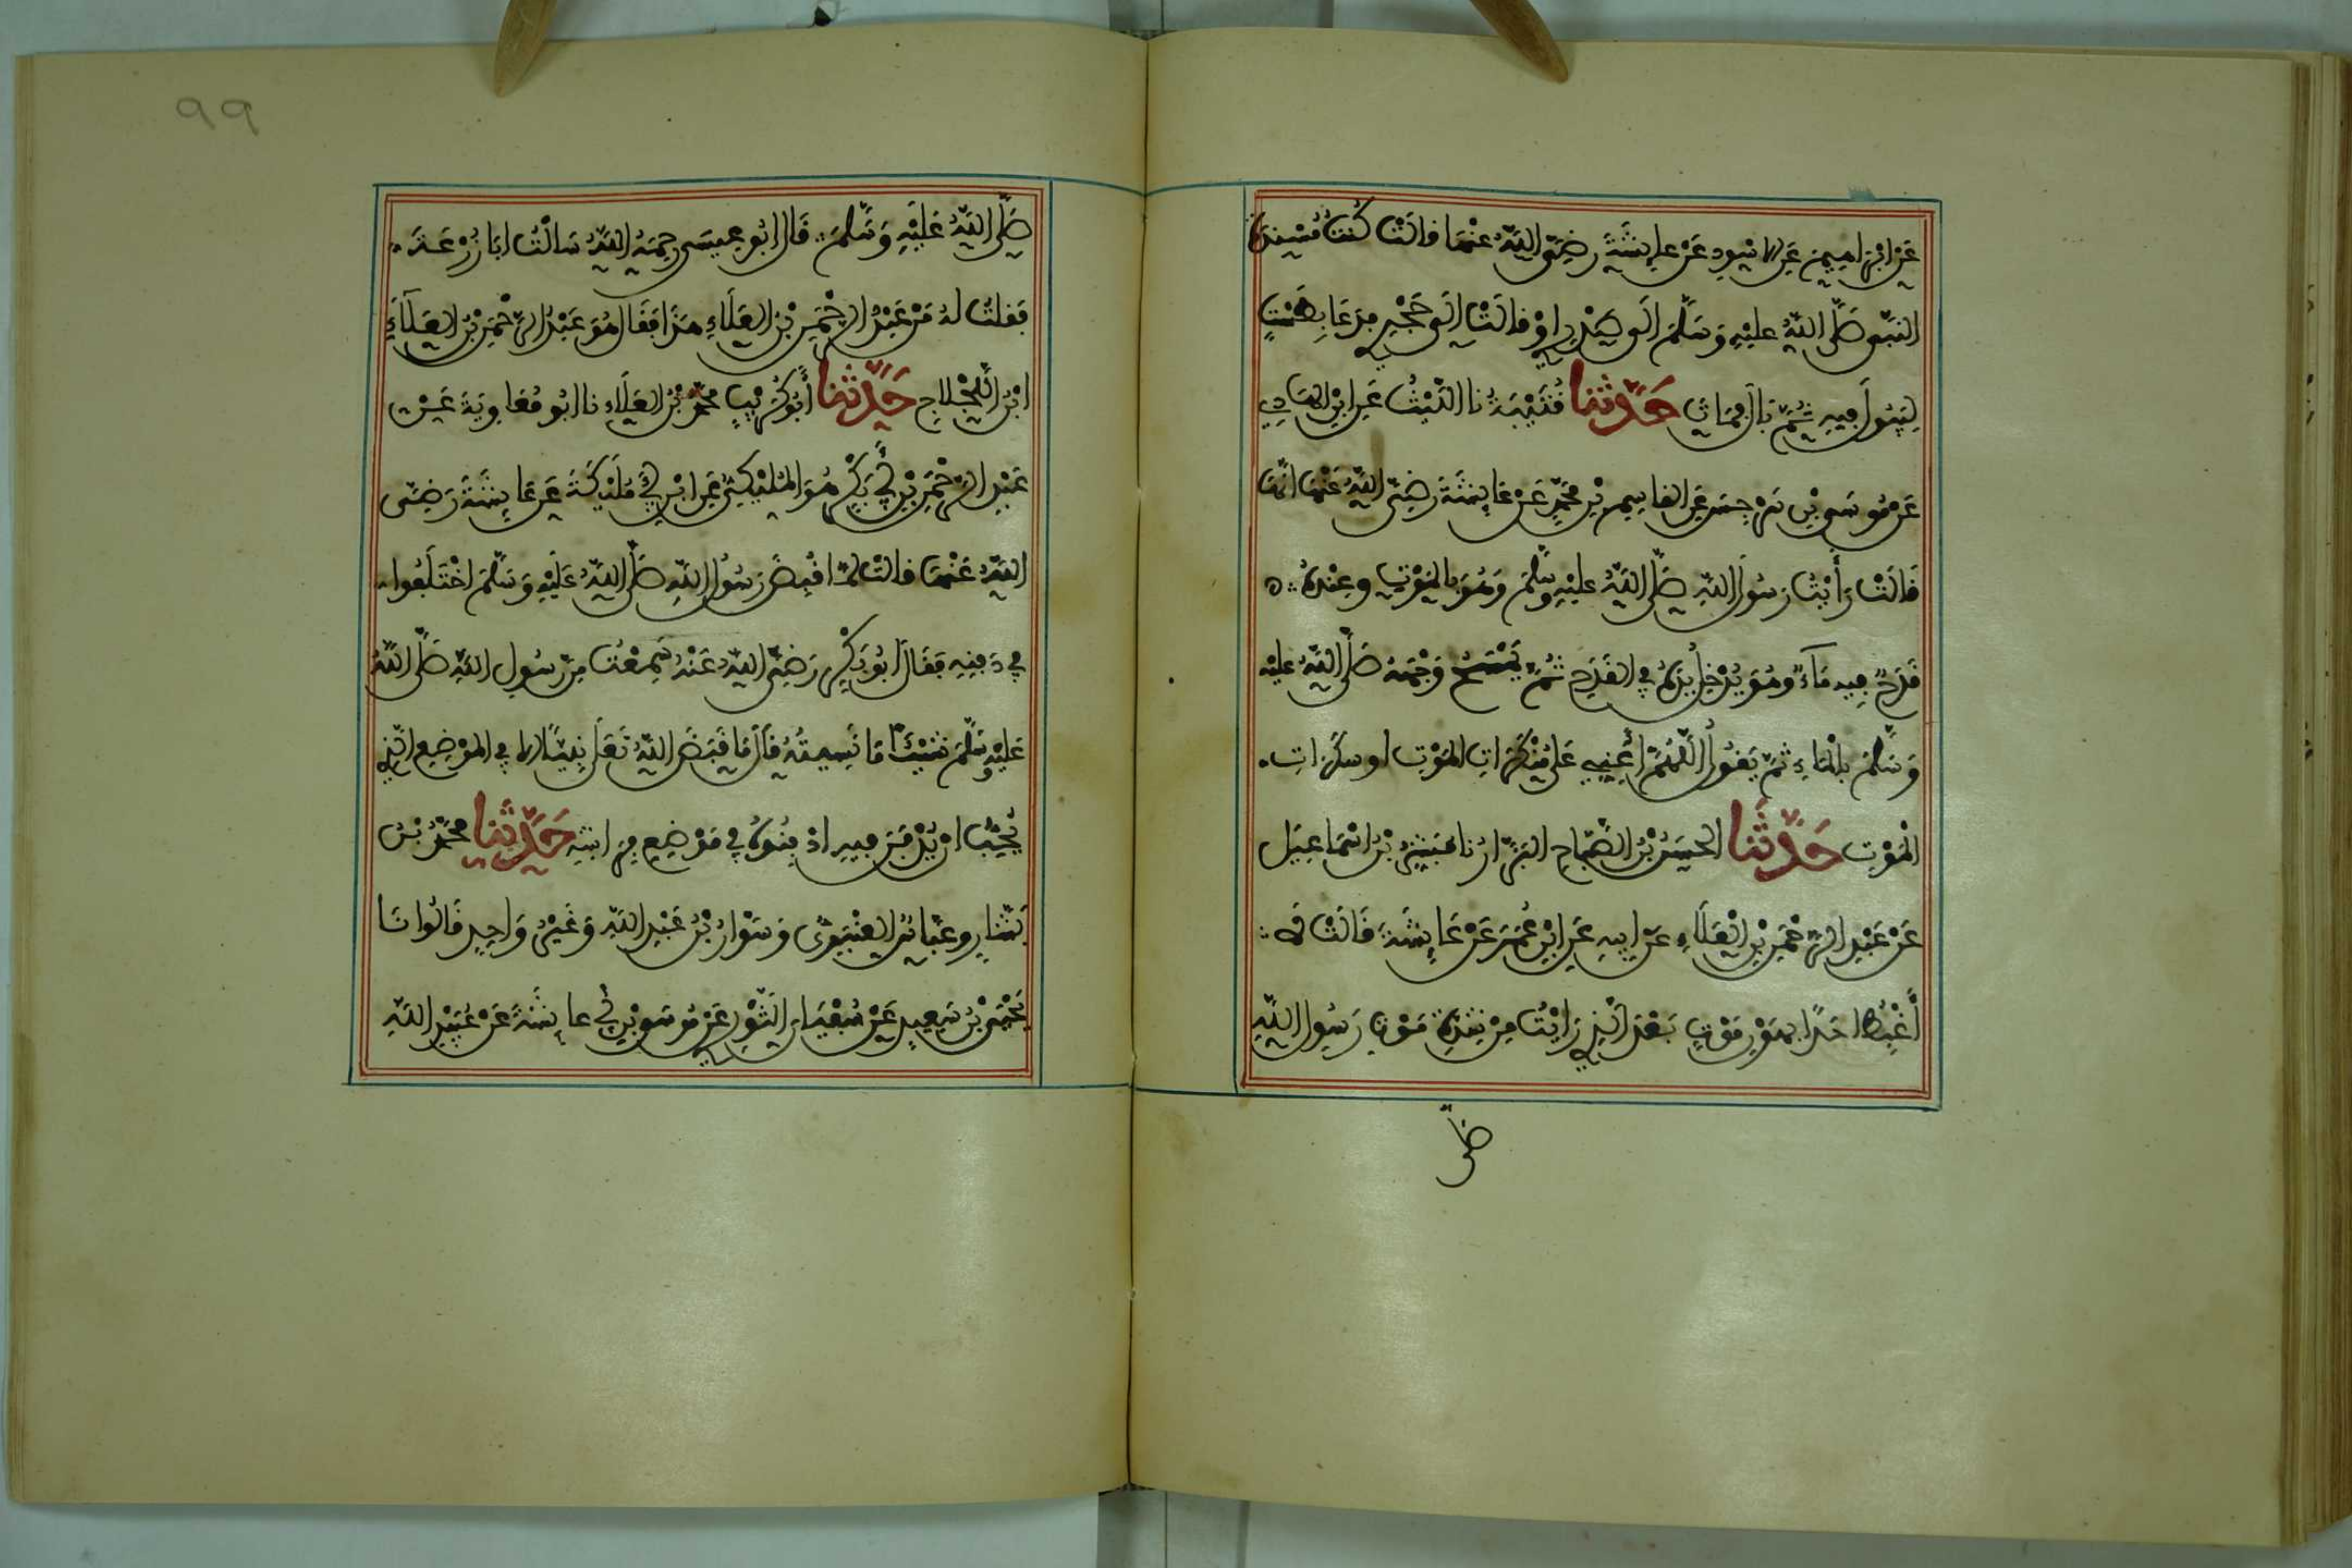 عَنِ ابْرٰهِيمَ عَنِ الاسْوَدِ عَنْ عايِشَةَ رَضِيَ اللَّهُ عَنْهَا قالَتْ كُنتُ مُسْنِدَةً
النَّبِيَّ صَلَّى اللَّهُ عليْهِ وَسَلَّمَ الَى صَدْرِي اوْ قالَتْ الَى حَجْرِي فَدَعَا بِطَسْتٍ
لِيَبُولَ فِيهِ ثُمَّ بَالَ فَمَاتَ حَدَّثَنَا قُتَيْبَةُ نا اللَّيْثُ عَنِ ابْنِ الهَادِي
عَنْ مُوسَى بْنِ سَرْجِسَ عَنِ القاسِمِ بْنِ مُحَمَّدٍ عَنْ عَايِشَةَ رَضِيَ اللَّهُ عَنْهَا انَّهَا
قَالَتْ رَأَيْتُ رَسُولَ اللَّهِ صَلَّى اللَّهُ عليْهِ وَسَلَّمَ وَهُوَ بِالمَوْتِ وعِنْدَهُ
قَدَحٌ فِيهِ مَآءٌ وهُوَ يُدْخِلُ يَدَهُ فِي القَدَحِ ثُمَّ يَمْسَحُ وَجْهَهُ صَلَّى اللَّهُ عليْهِ
وَسَلَّمَ بِالْمَاءِ ثُمَّ يَقُولُ اللَّهُمَّ أَعِنِّي عَلَى مُنْكَرَاتِ المَوْتِ او سكَرَاتِ
الْمَوْتِ حَدَّثَنَا الحَسَنُ بْنُ الصَّبَّاحِ البَزَّارُ نا مُبَشِّرُ بْنُ اسْمَاعِيلَ
عَنْ عَبْدِ الرَّحْمَنِ بْنِ الْعَلَاءِ عَنْ ابِيهِ عَنِ ابْنِ عُمَرَ عَنْ عَايِشَةَ قَالَتْ لَا
أَغْبِطُ احَدًا بِهَوْنِ مَوْتٍ بَعْدَ الَّذِي رَايْتُ مِنْ شِدَّةِ مَوْتِ رَسُولِ اللَّهِ
صَلَّى
٩٩
صَلَّى اللَّهُ عَلَيْهِ وَسَلَّمَ قَالَ ابُو عِيسَى رحِمَهُ اللَّهُ سَالْتُ ابَا زُرْعَةَ
فَقلتُ لهُ مَنْ عَبْدُ الرَّحْمَنِ بْنُ العَلَاءِ هَذَا فَقَالَ هُوَ عَبْدُ الرَّحْمَنِ بْنُ العَلَآءِ
ابْنُ اللَّجْلَاجِ حَدَّثَنَا أَبُو كُرَيْبٍ مُحَمَّدُ بْنُ العَلَاءِ نا ابُو مُعَاوِيَةَ عَنْ
عَبْدِ الرَّحْمَنِ بْنِ أَبِي بَكْرٍ هُوَ المُلَيْكِيُّ عَنِ ابْنِ أَبِي مُلَيْكَةَ عَنْ عَايِشَةَ رَضِيَ
اللَّهُ عَنْهَا قالَتْ لَمَّا قُبِضَ رَسُولُ اللَّهِ صَلَّى اللَّهُ عَلَيْهِ وَسَلَّمَ اخْتَلَفُوا
فِي دَفْنِهِ فَقَالَ ابُو بَكْرٍ رَضِيَ اللَّهُ عَنْهُ سَمِعْتُ مِن رَّسُولِ اللَّهِ صَلَّى اللَّهُ
عَلَيْهِ وَسَلَّمَ شَيْئًا مَا نَسِيتُهُ قَالَ مَا قَبَضَ اللَّهُ تَعَلَى نَبِيًّا الا فِي المَوْضِعِ الَّذِي
يُحِبُّ ان يُدْفَنَ فِيهِ ادْفِنُوهُ فِي مَوْضِعِ فِرَاشِهِ حَدَّثَنَا مُحَمَّدُ بْنُ
بَشَّارٍ وعَبَّاسٌ العَنْبَرِيُّ وَسَوَّارُ بْنُ عَبْدِ اللَّهِ وَغَيْرُ وَاحِدٍ قَالُوا نَا
يَحْيَى بْنُ سَعِيدٍ عَنْ سُفْيَانَ الثَّوْرِي عَنْ مُوسَى بْنِ أَبِي عايِشَةَ عَنْ عُبَيْدِ اللَّهِ